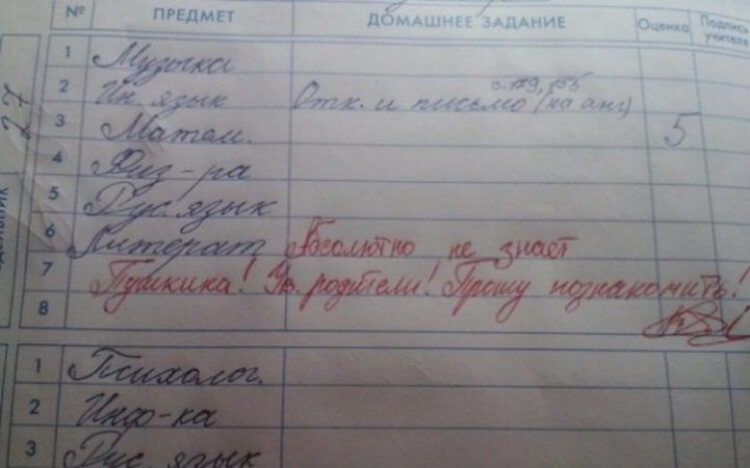 № ПРЕДМЕТ ДОМАШНЕЕ ЗАДАНИЕ Оценка Подпись учителя
27
1 Музыка
с. 119, 155
2 Ин. язык Отк. и письмо (на анг)
3 Матем. 5
4 Физ-ра
5 Рус. язык
6 Литерат Абсолютно не знает
7 Пушкина! Ув. родители! Прошу познакомить!
8
1 Психолог.
2 Инф-ка
3 Рус. язык